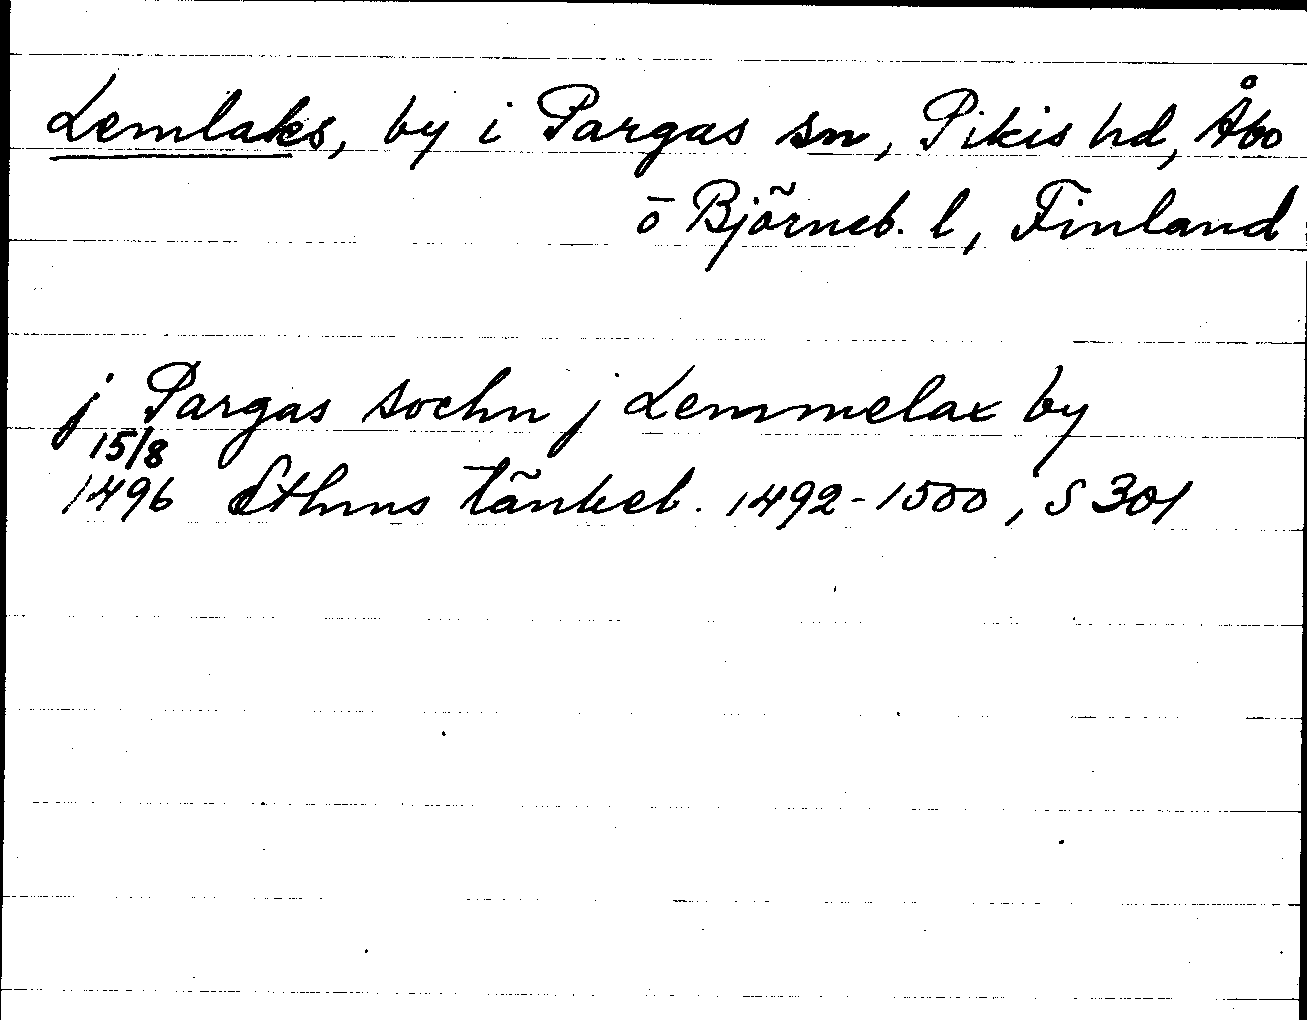 Lemlaks, by i Pargas sn, Pikis hd, Åbo
o Björneb. l, Finland
j Pargas sochn j Lemmelax by
15/8
1496 Sthms tänkeb. 1492-1500, S 301